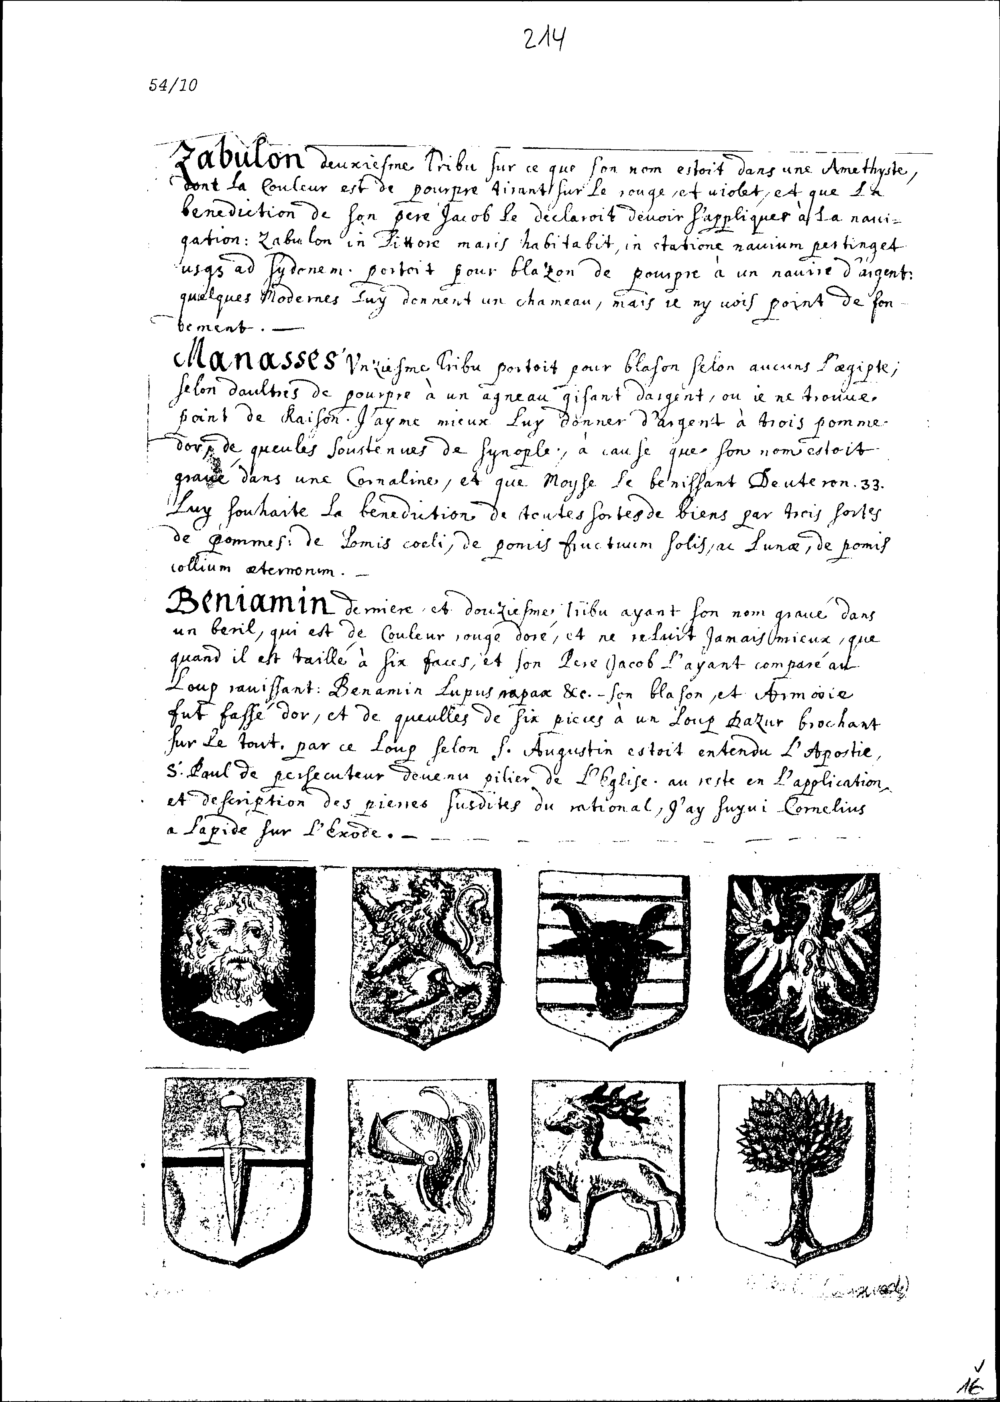 214
54/10
Zabulon deuxiesme Tribu sur ce que son nom estoit dans une Amethyste,
dont la Couleur est de pourpre tirant sur le rouge, et violet, et que la
benediction de son pere Jacob le declaroit deuoir s'appliquer à la naui-
gation: Zabulon in littore maris habitabit, in statione nauium pertinget
usqs ad sydonem. portoit pour blazon de pourpre à un nauire d'argent:
quelques Modernes luy donnent un chameau, mais ie ny uois point de fon-
dement. —
Manasses Vnziesme Tribu portoit pour blason selon aucuns l'ægipte;
selon daultres de pourpre à un agneau gisant dargent, ou ie ne trouue
point de Raison. J'ayme mieux luy donner d'argent à trois pomme
dor, de queules soustenues de synople, à cause que son nom estoit
graué dans une Cornaline, et que Moyse le benissant Deuteron. 33.
Luy souhaite la benediction de toutes sortes de biens par trois sortes
de pommes: de Pomis coeli, de pomis fructuum solis, ac Lunæ, de pomis
collium æternorum. —
Beniamin derniere et douziesme Tribu ayant son nom graué dans
un beril, qui est de Couleur rouge doré, et ne reluit Jamais mieux, que
quand il est taillé à six faces, et son Pere Jacob l'ayant comparé au
Loup rauissant: Benamin Lupus rapax &c. - son blason, et Armoirie
fut fassé dor, et de queulles de six pieces à un Loup dazur brochant
sur le tout. par ce Loup selon S. Augustin estoit entendu L'Apostre,
S. Paul de persecuteur deuenu pilier de L'Eglise. au reste en l'application
et description des pierres susdites du rational, J'ay suyui Cornelius
a Lapide sur L'Exode. —
16